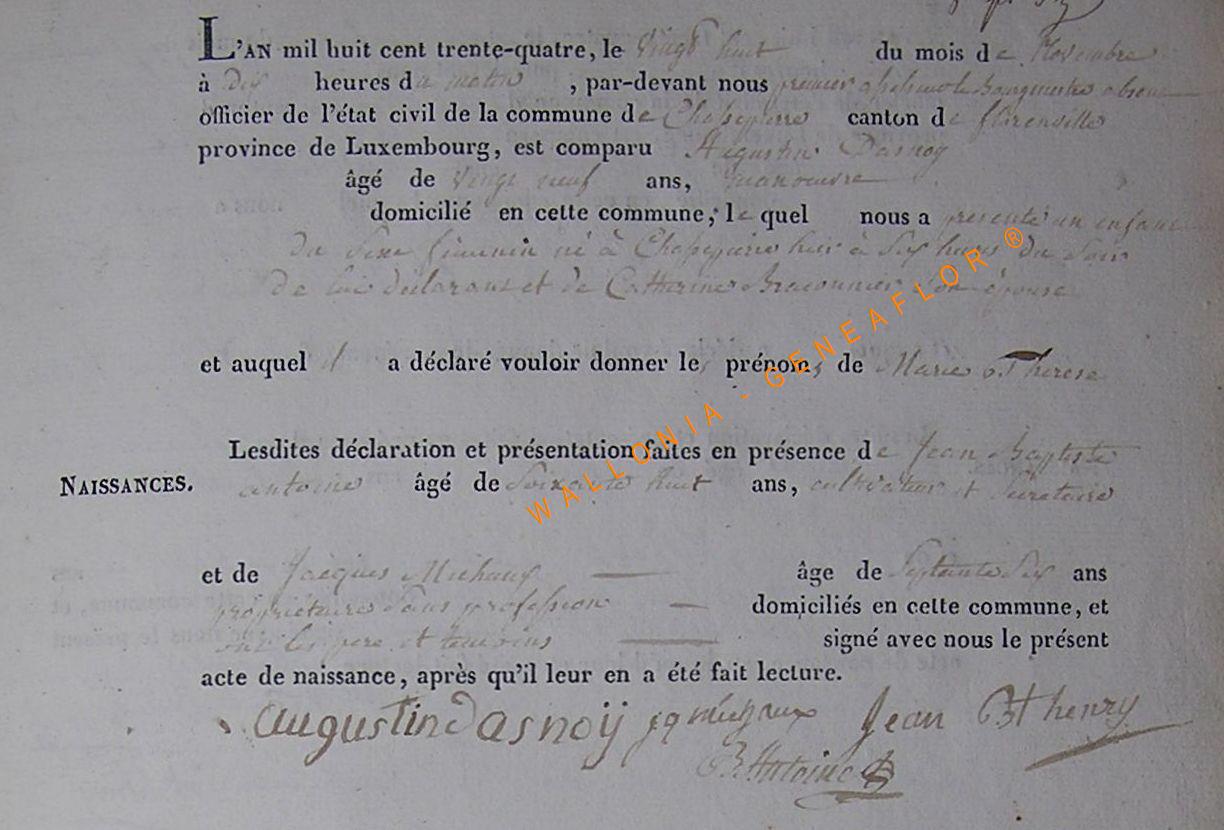 L'AN mil huit cent trente-quatre, le vingt huit du mois de Novembre
à Dix heures du matin, par-devant nous premier Bourgmestre absent
officier de l'état civil de la commune de Chassepierre canton de florenville
province de Luxembourg, est comparu Augustin Dasnoy
âgé de vingt neuf ans, manoeuvre
domicilié en cette commune, le quel nous a présenté un enfant
du Sexe féminin né à Chassepierre hier à Six heures du Soir
de lui déclarant et de Catherine Braconnier Son épouse
et auquel il a déclaré vouloir donner les prénoms de Marie Thérèse
Lesdites déclaration et présentation faites en présence de Jean Baptiste
NAISSANCES. antoine âgé de Soixante huit ans, cultivateur et Secretaire
et de Jacques Michaux âge de Septante Six ans
propriétaire Sans profession domiciliés en cette commune, et
ont les pere et temoins signé avec nous le présent
acte de naissance, après qu'il leur en a été fait lecture.
augustin Dasnoÿ jq michaux Jean Bt henry
Bt Antoine
WALLONIA - GENEAFLOR ®